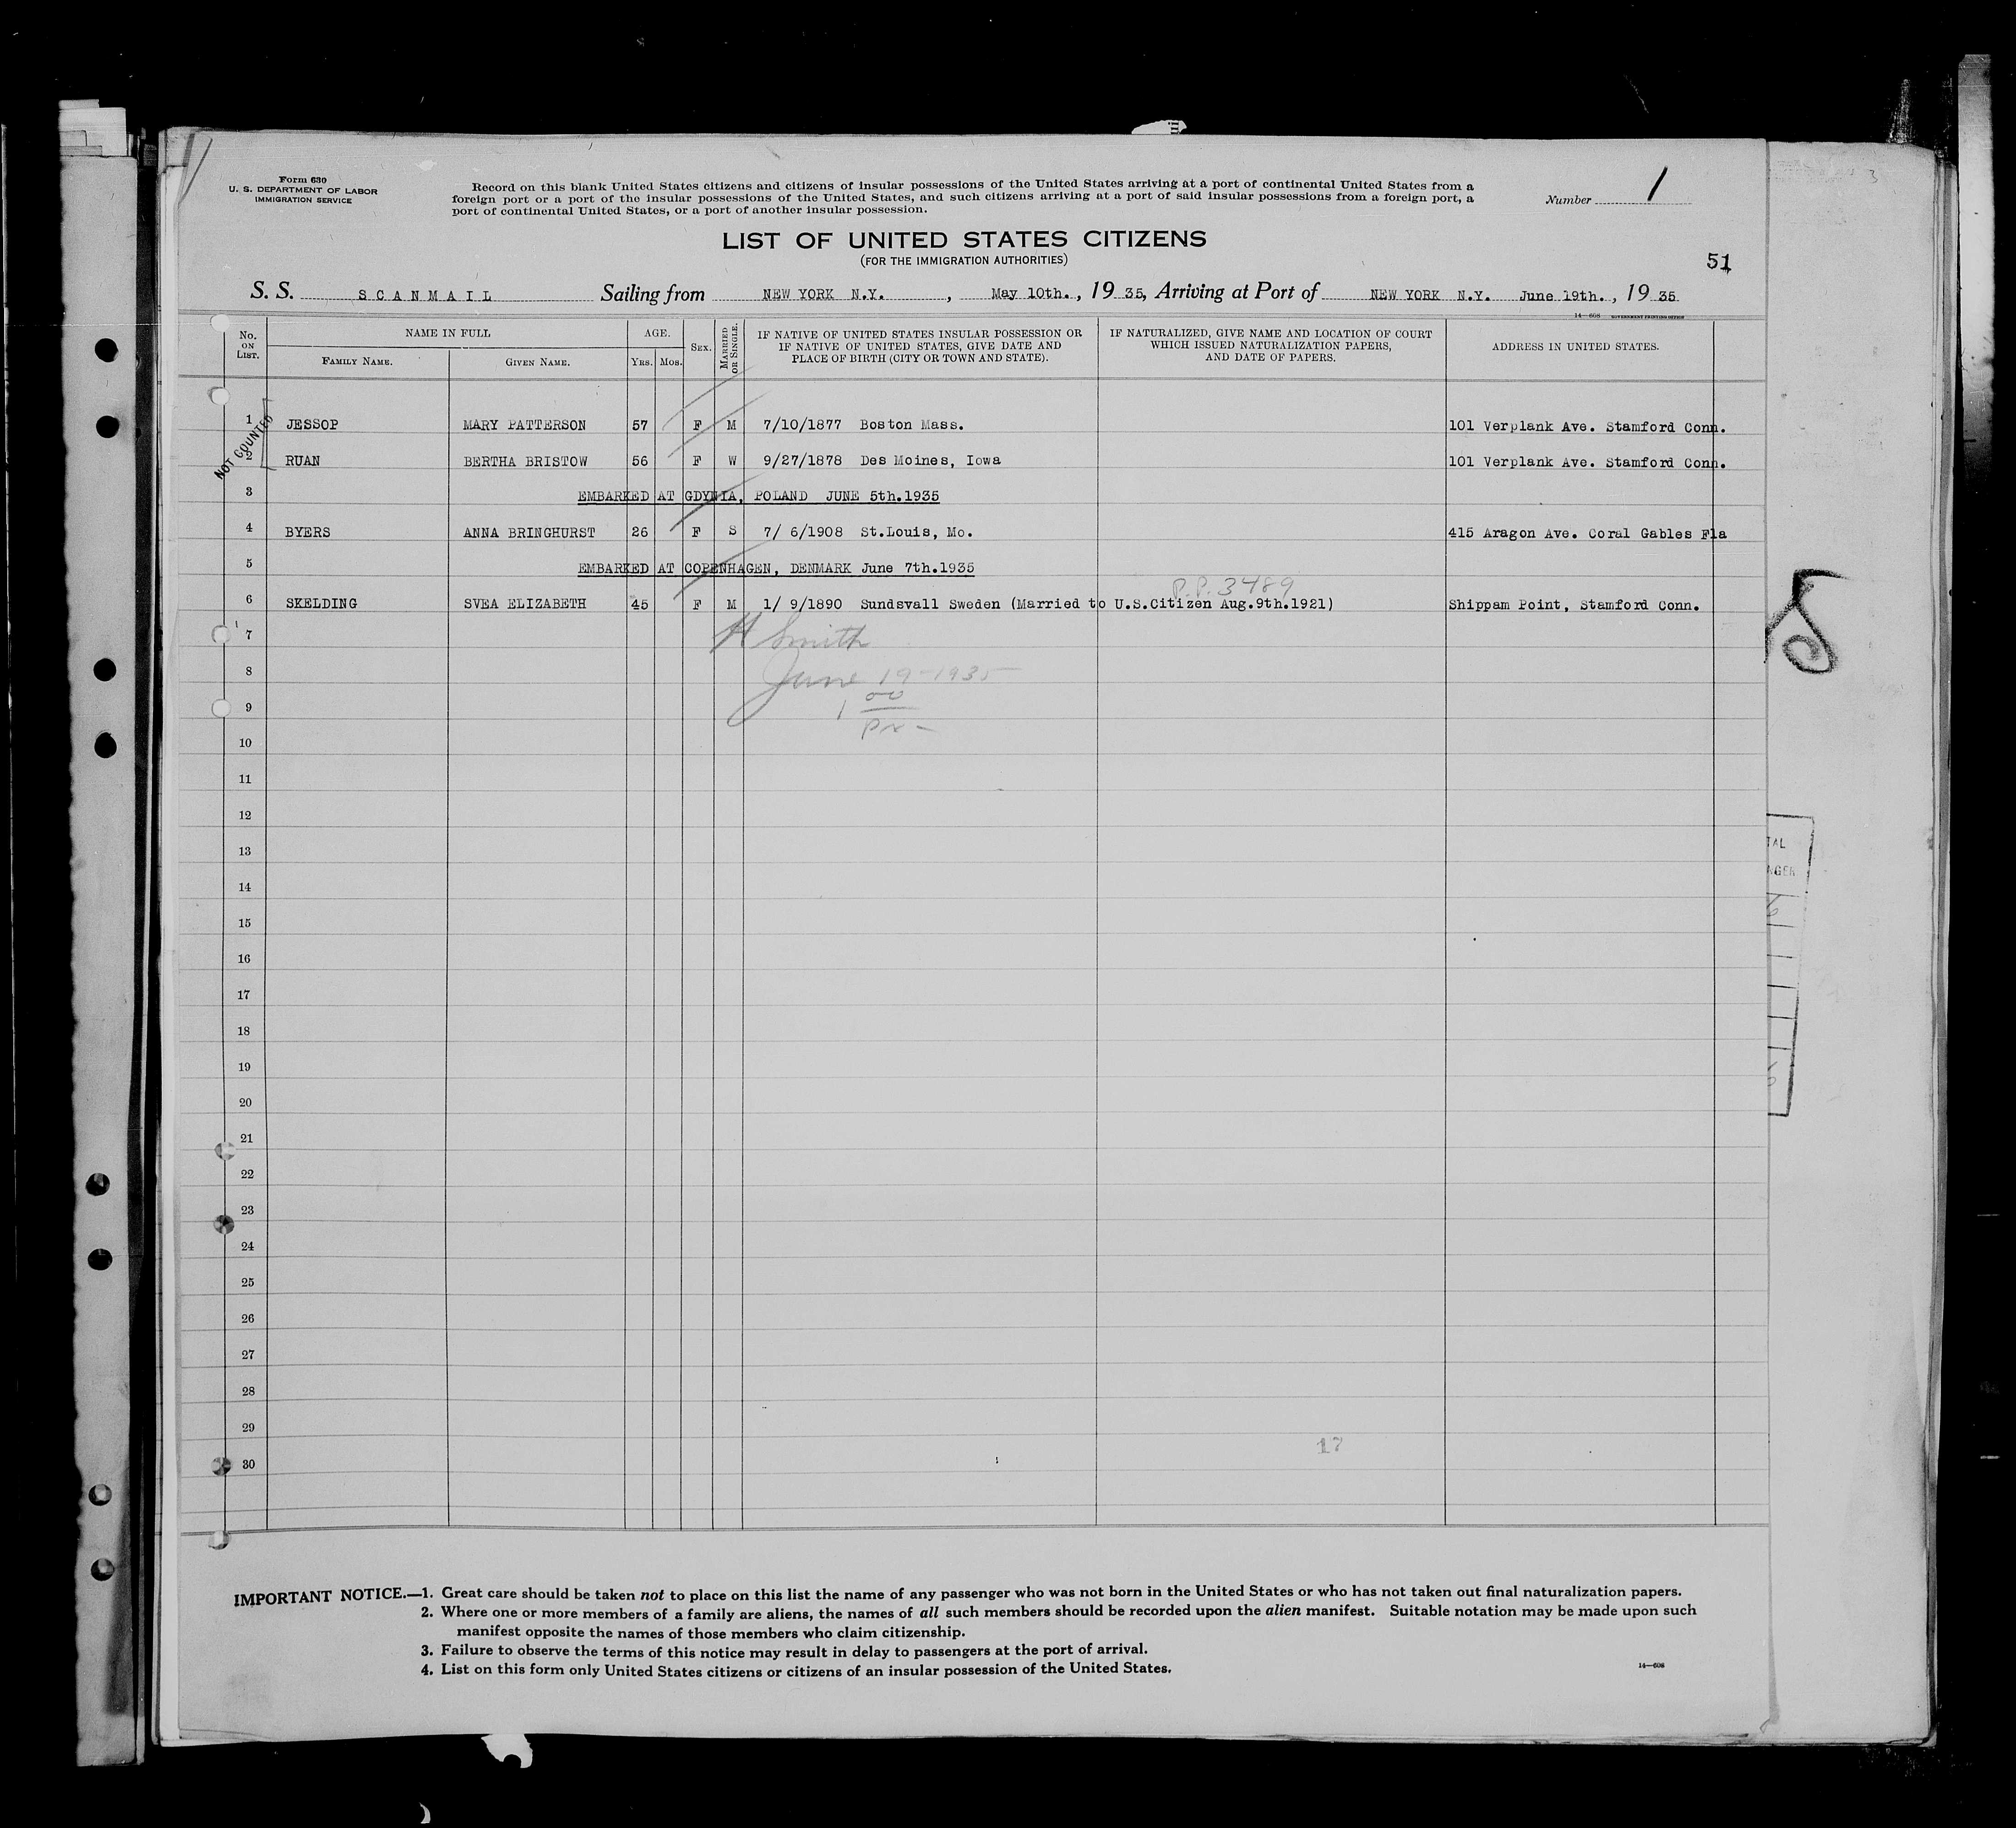 Form 630
U. S. DEPARTMENT OF LABOR
IMMIGRATION SERVICE
Record on this blank United States citizens and citizens of insular possessions of the United States arriving at a port of continental United States from a
foreign port or a port of the insular possessions of the United States, and such citizens arriving at a port of said insular possessions from a foreign port, a
port of continental United States, or a port of another insular possession.
Number 1
LIST OF UNITED STATES CITIZENS
(FOR THE IMMIGRATION AUTHORITIES)
51
S. S. SCANMAIL Sailing from NEW YORK N.Y. , May 10th. , 19 35, Arriving at Port of NEW YORK N.Y. June 19th. , 19 35
14—608 GOVERNMENT PRINTING OFFICE
No. ON LIST.
NAME IN FULL
FAMILY NAME.
GIVEN NAME.
AGE.
YRS. MOS.
SEX.
MARRIED OR SINGLE.
IF NATIVE OF UNITED STATES INSULAR POSSESSION OR
IF NATIVE OF UNITED STATES, GIVE DATE AND
PLACE OF BIRTH (CITY OR TOWN AND STATE).
IF NATURALIZED, GIVE NAME AND LOCATION OF COURT
WHICH ISSUED NATURALIZATION PAPERS,
AND DATE OF PAPERS.
ADDRESS IN UNITED STATES.
NOT COUNTED
1 JESSOP MARY PATTERSON 57 F M 7/10/1877 Boston Mass. 101 Verplank Ave. Stamford Conn.
2 RUAN BERTHA BRISTOW 56 F W 9/27/1878 Des Moines, Iowa 101 Verplank Ave. Stamford Conn.
3 EMBARKED AT GDYNIA, POLAND JUNE 5th.1935
4 BYERS ANNA BRINGHURST 26 F S 7/ 6/1908 St.Louis, Mo. 415 Aragon Ave. Coral Gables Fla
5 EMBARKED AT COPENHAGEN, DENMARK June 7th.1935
P.P. 3489
6 SKELDING SVEA ELIZABETH 45 F M 1/ 9/1890 Sundsvall Sweden (Married to U.S.Citizen Aug.9th.1921) Shippam Point, Stamford Conn.
7 H Smith
8 June 19-1935
9 1 00
10
11
12
13
14
15
16
17
18
19
20
21
22
23
24
25
26
27
28
29
17
30
IMPORTANT NOTICE.—1. Great care should be taken not to place on this list the name of any passenger who was not born in the United States or who has not taken out final naturalization papers.
2. Where one or more members of a family are aliens, the names of all such members should be recorded upon the alien manifest. Suitable notation may be made upon such
manifest opposite the names of those members who claim citizenship.
3. Failure to observe the terms of this notice may result in delay to passengers at the port of arrival.
4. List on this form only United States citizens or citizens of an insular possession of the United States.
14—608